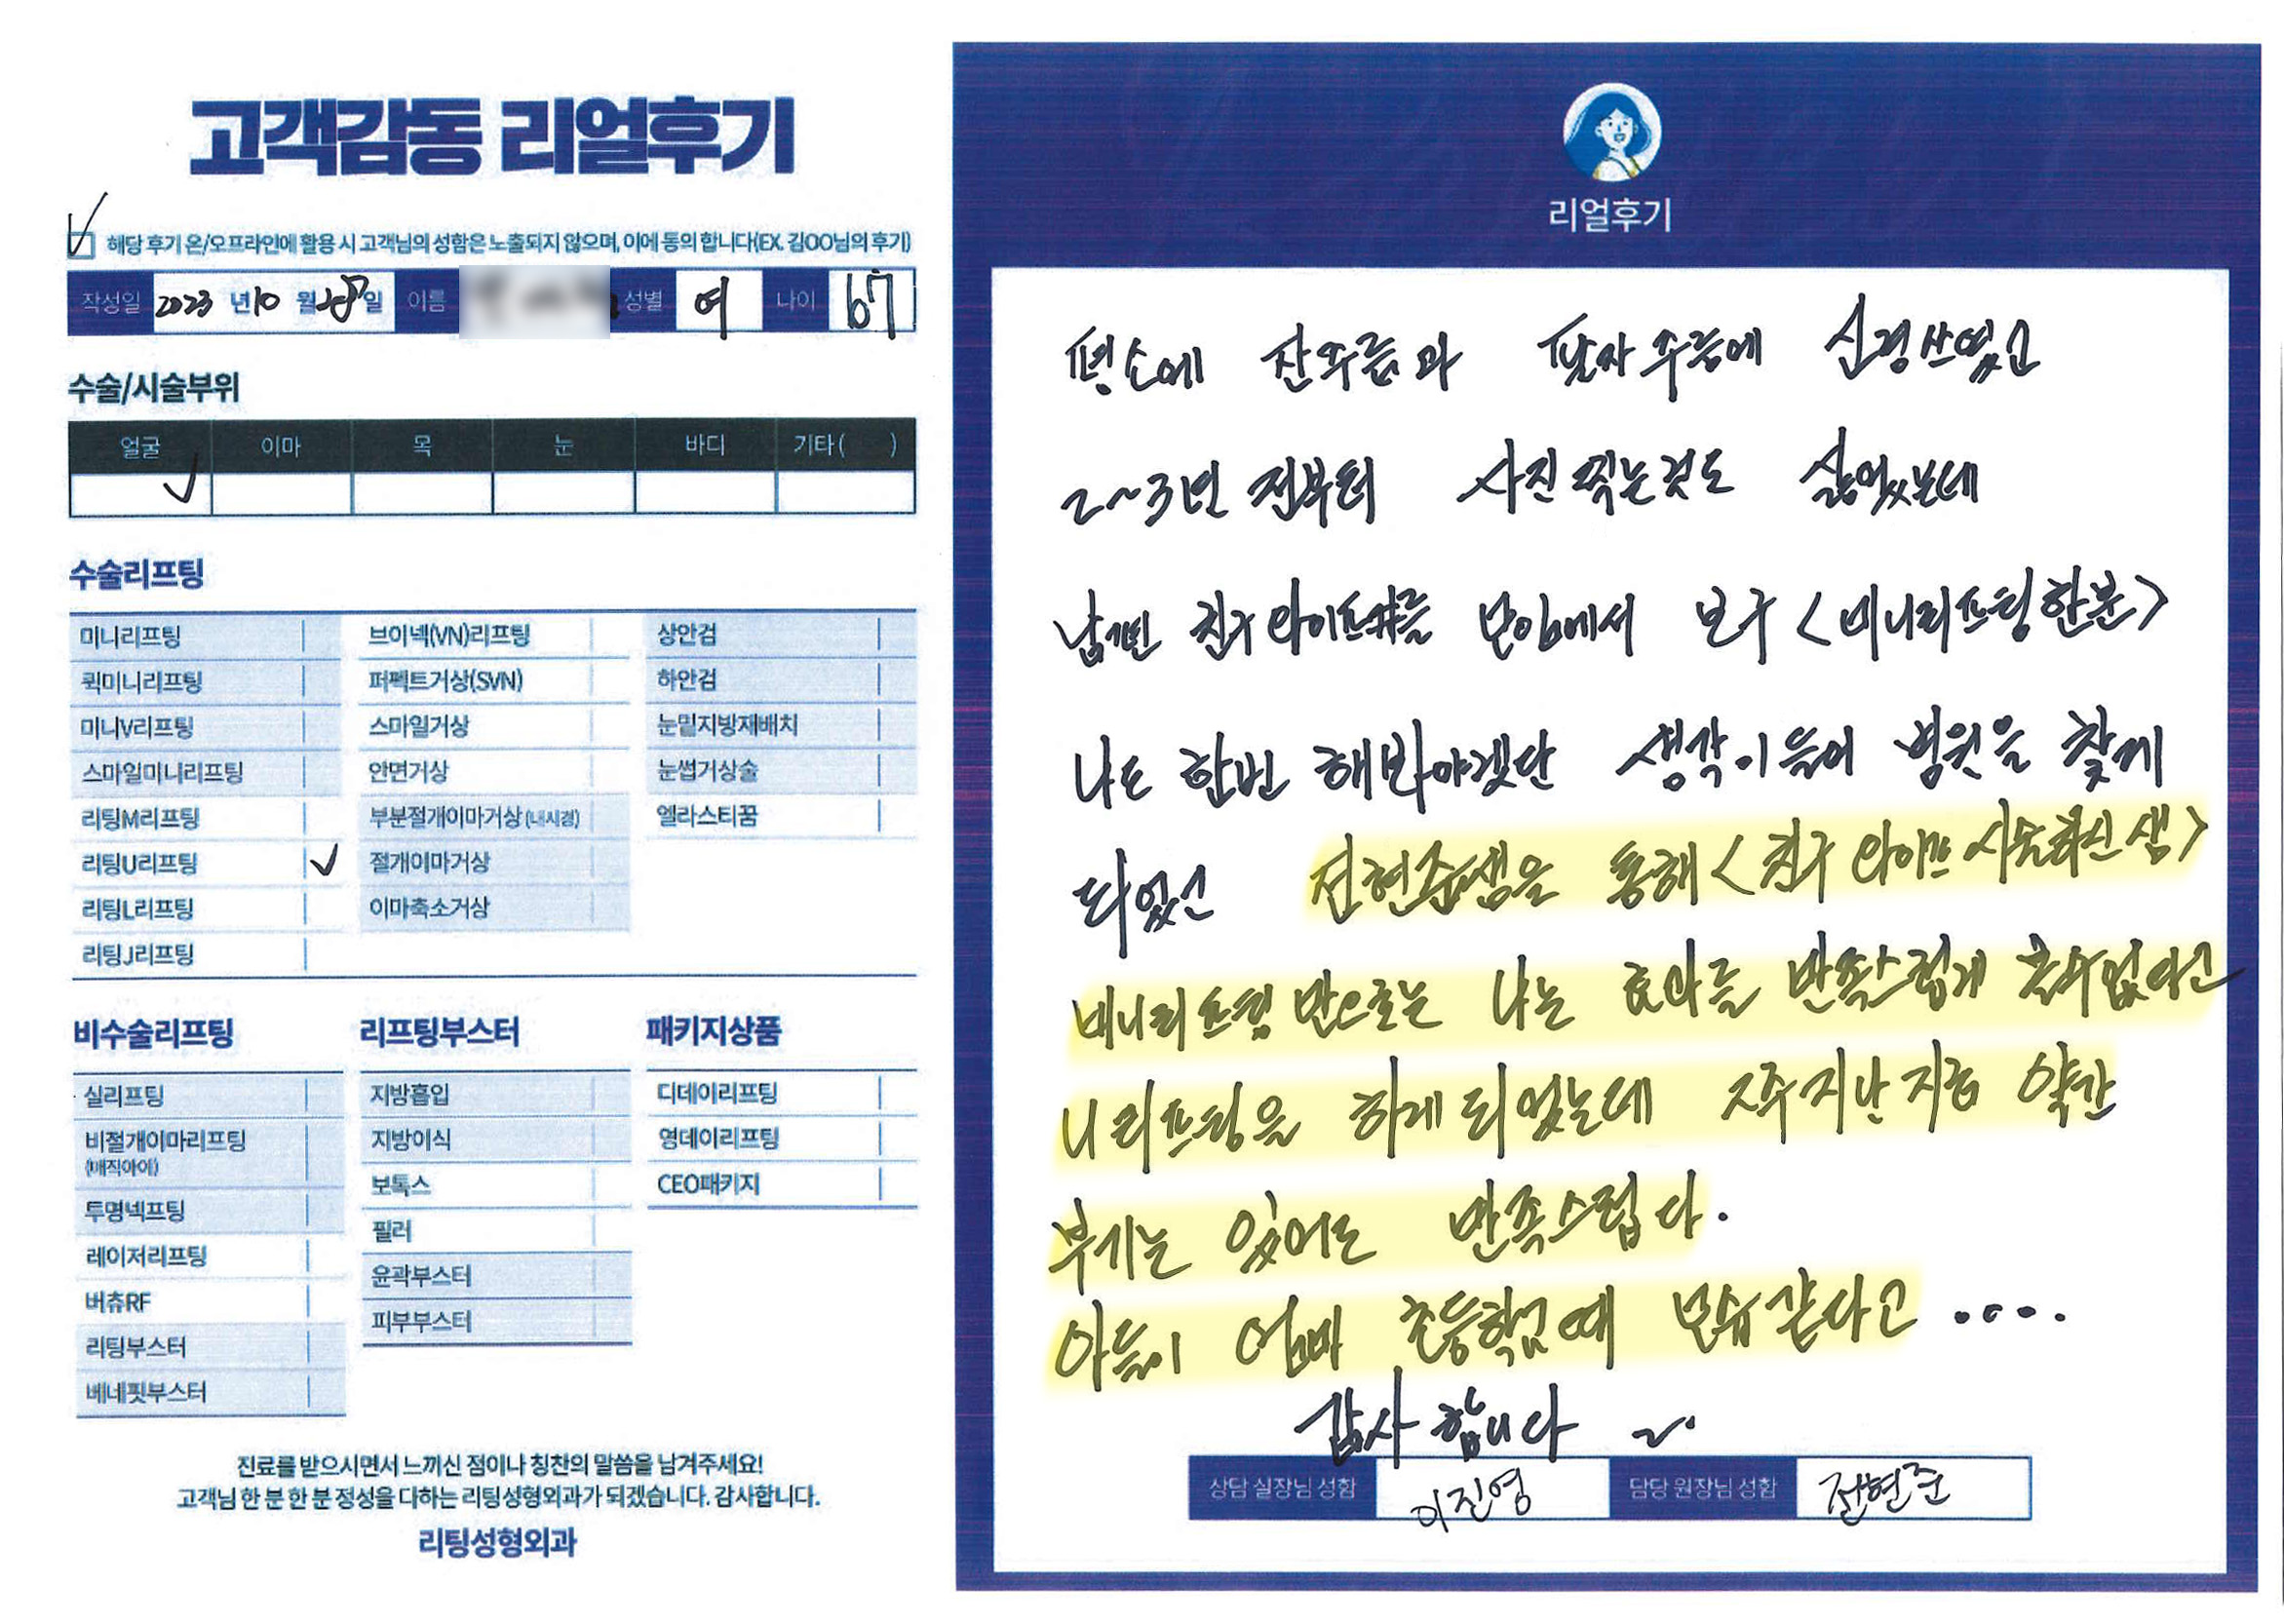 고객감동 리얼후기
해당 후기 온/오프라인에 활용 시 고객님의 성함은 노출되지 않으며, 이에 동의 합니다(EX. 김OO님의 후기)
작성일 2023 년 10 월 28 일 이름 성별 여 나이 67
수술/시술부위
얼굴 이마 목 눈 바디 기타( )
수술리프팅
미니리프팅 브이넥(VN)리프팅 상안검
퀵미니리프팅 퍼펙트거상(SVN) 하안검
미니V리프팅 스마일거상 눈밑지방재배치
스마일미니리프팅 안면거상 눈썹거상술
리팅M리프팅 부분절개이마거상(내시경) 엘라스티꿈
리팅U리프팅 절개이마거상
리팅L리프팅 이마축소거상
리팅J리프팅
비수술리프팅 리프팅부스터 패키지상품
실리프팅 지방흡입 디데이리프팅
비절개이마리프팅 지방이식 영데이리프팅
(매직아이)
투명넥프팅 보톡스 CEO패키지
레이저리프팅 필러
버츄RF 윤곽부스터
리팅부스터 피부부스터
베네핏부스터
진료를 받으시면서 느끼신 점이나 칭찬의 말씀을 남겨주세요!
고객님 한 분 한 분 정성을 다하는 리팅성형외과가 되겠습니다. 감사합니다.
리팅성형외과
리얼후기
평소에 잔주름과 팔자주름에 신경쓰였고
2~3년 전부터 사진찍는것도 싫었는데
남편 친구 와이프를 모임에서 보구 <미니리프팅한분>
나도 한번 해봐야겠단 생각이들어 병원을 찾게
되었고 전현준샘을 통해 <친구 와이프 시술하신 샘>
미니리프팅만으로는 나는 효과를 만족스럽게 줄수없다고
U리프팅을 하게되었는데 2주지난지금 약간
부기는 있어도 만족스럽다.
아들이 엄마 초등학교때 모습같다고 ....
감사합니다 ~.
상담 실장님 성함 이진영 담당 원장님 성함 전현준